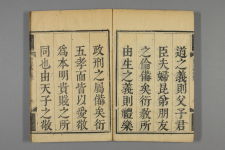 道之義則父子君
臣夫婦昆弟朋友
之倫備矣衍敎
由生之義則禮樂
政刑之屬備矣衍
五孝而皆以愛敬
為本明貴賤之所
同也由天子之敬